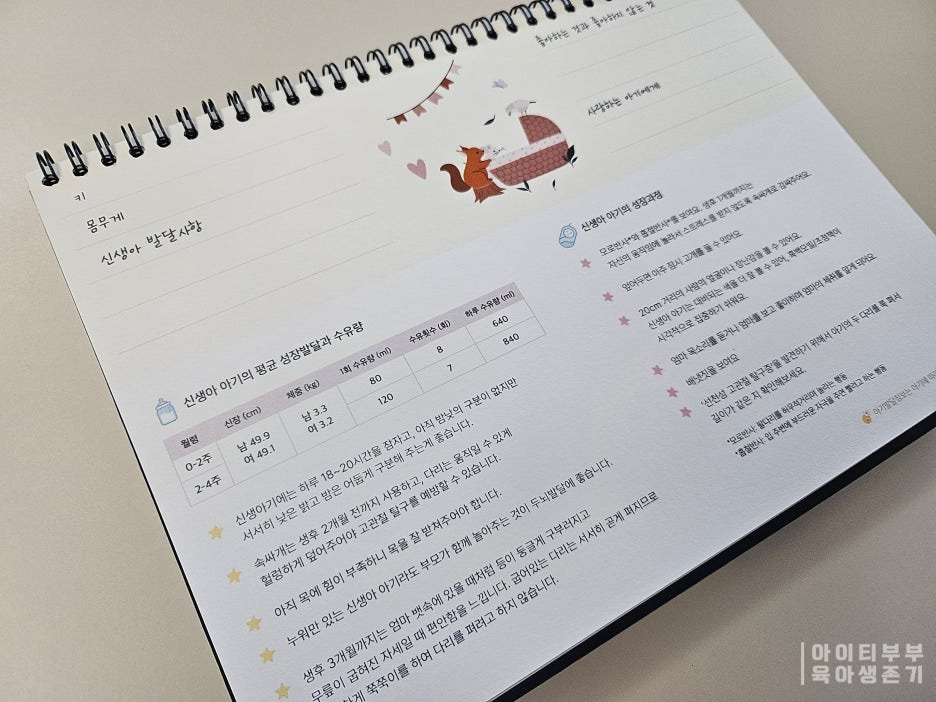 키
몸무게
신생아 발달사항
좋아하는 것과 좋아하지 않는 것
사랑하는 아기에게
신생아 아기의 평균 성장발달과 수유량
월령 신장 (cm) 체중 (kg) 1회 수유량 (ml) 수유횟수 (회) 하루 수유량 (ml)
0-2주 남 49.9 여 49.1 남 3.3 여 3.2 80 8 640
2-4주 120 7 840
신생아기에는 하루 18~20시간을 잠자고, 아직 밤낮의 구분이 없지만
서서히 낮은 밝고 밤은 어둡게 구분해 주는게 좋습니다.
속싸개는 생후 2개월 전까지 사용하고, 다리는 움직일 수 있게
헐렁하게 덮어주어야 고관절 탈구를 예방할 수 있습니다.
아직 목에 힘이 부족하니 목을 잘 받쳐주어야 합니다.
누워만 있는 신생아 아기라도 부모가 함께 놀아주는 것이 두뇌발달에 좋습니다.
생후 3개월까지는 엄마 뱃속에 있을 때처럼 등이 둥글게 구부러지고
무릎이 굽혀진 자세일 때 편안함을 느낍니다. 굽어있는 다리는 서서히 곧게 펴지므로
하게 쭉쭉이를 하여 다리를 펴려고 하지 않습니다.
신생아 아기의 성장과정
모로반사*와 흡철반사*를 보여요. 생후 1개월까지는
자신의 움직임에 놀라서 스트레스를 받지 않도록 속싸개로 감싸주어요.
엎어두면 아주 잠시 고개를 들 수 있어요.
20cm 거리의 사람의 얼굴이나 장난감을 볼 수 있어요.
신생아 아기는 대비되는 색을 더 잘 볼 수 있어, 흑백모빌/초점책이
시각적으로 집중하기 쉬워요.
엄마 목소리를 듣거나 엄마를 보고 좋아하며 엄마의 체취를 알게 되어요
배냇짓을 보여요
'선천성 고관절 탈구증'을 발견하기 위해서 아기의 두 다리를 쭉 펴서
길이가 같은 지 확인해보세요
*모로반사: 팔다리를 허우적거리며 놀라는 행동
*흡철반사: 입 주변에 부드러운 자극을 주면 빨려고 하는 행동
아기발달정보는 아기에
아이티부부
육아생존기